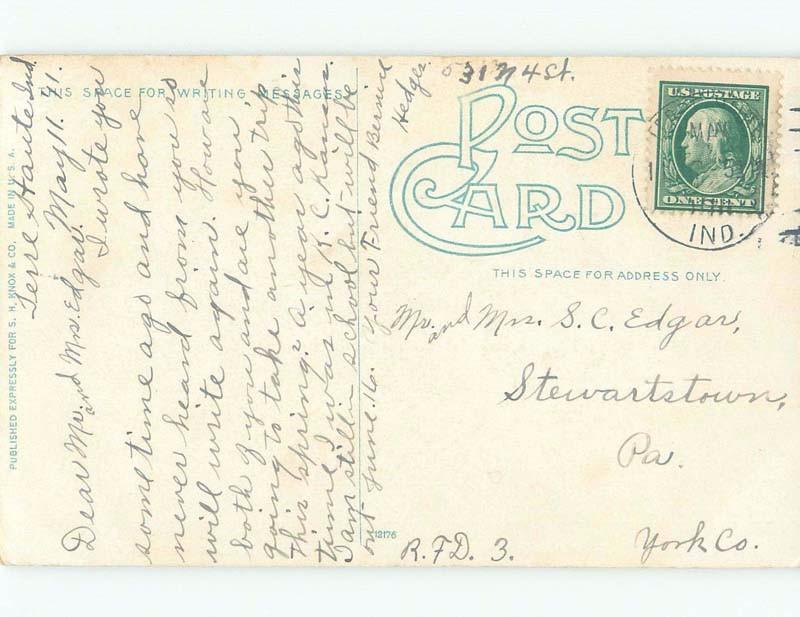 Terre Haute Ind.
May 11. 11.
Dear Mr. and Mrs. Edgar.
I wrote you
some time ago and have
never heard from you so
will write again. How are
both of you and are you
going to take another trip
this spring? A year ago this
time I was in K. C. Kansas.
I am still in school but will be
out June. 16. Your Friend Bernice
Hedges.
531 N 4 St.
THIS SPACE FOR WRITING MESSAGES
PUBLISHED EXPRESSLY FOR S. H. KNOX & CO. MADE IN U. S. A.
POST
CARD
U.S. POSTAGE
ONE CENT
MAY
IND.
THIS SPACE FOR ADDRESS ONLY.
Mr. and Mrs. S. C. Edgar,
Stewartstown,
Pa.
R.F.D. 3.
York Co.
12176